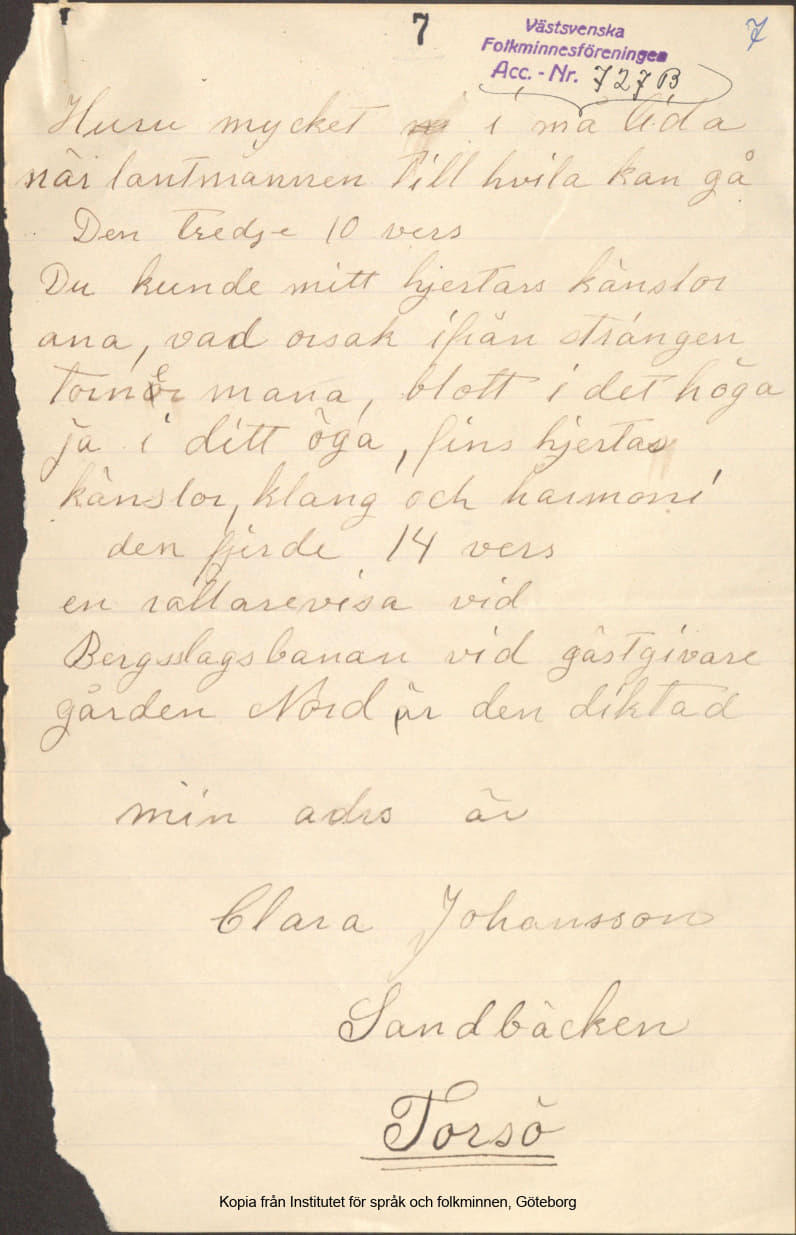 7
7
Västsvenska
Folkminnesföreningen
Acc. - Nr. 727 B
Huru mycket i må lida
när lantmannen till hvila kan gå
Den tredje 10 vers
Du kunde mitt hjertars känslor
ana, vad orsak ifrån strängen
mana, blott i det höga
ja i ditt öga, fins hjertas
känslor, klang och harmoni
den fjerde 14 vers
en rallarevisa vid
Bergsslagsbanan vid gästgivare
gården Nord är den diktad
min adrs är
Clara Johansson
Sandbäcken
Torsö
Kopia från Institutet för språk och folkminnen, Göteborg